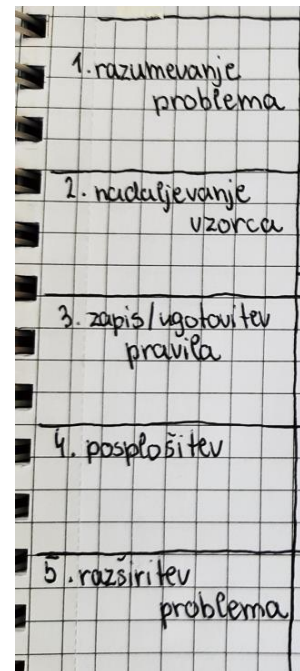 1. razumevanje
problema
2. nadaljevanje
vzorca
3. zapis/ugotovitev
pravila
4. posplošitev
5. razširitev
problema